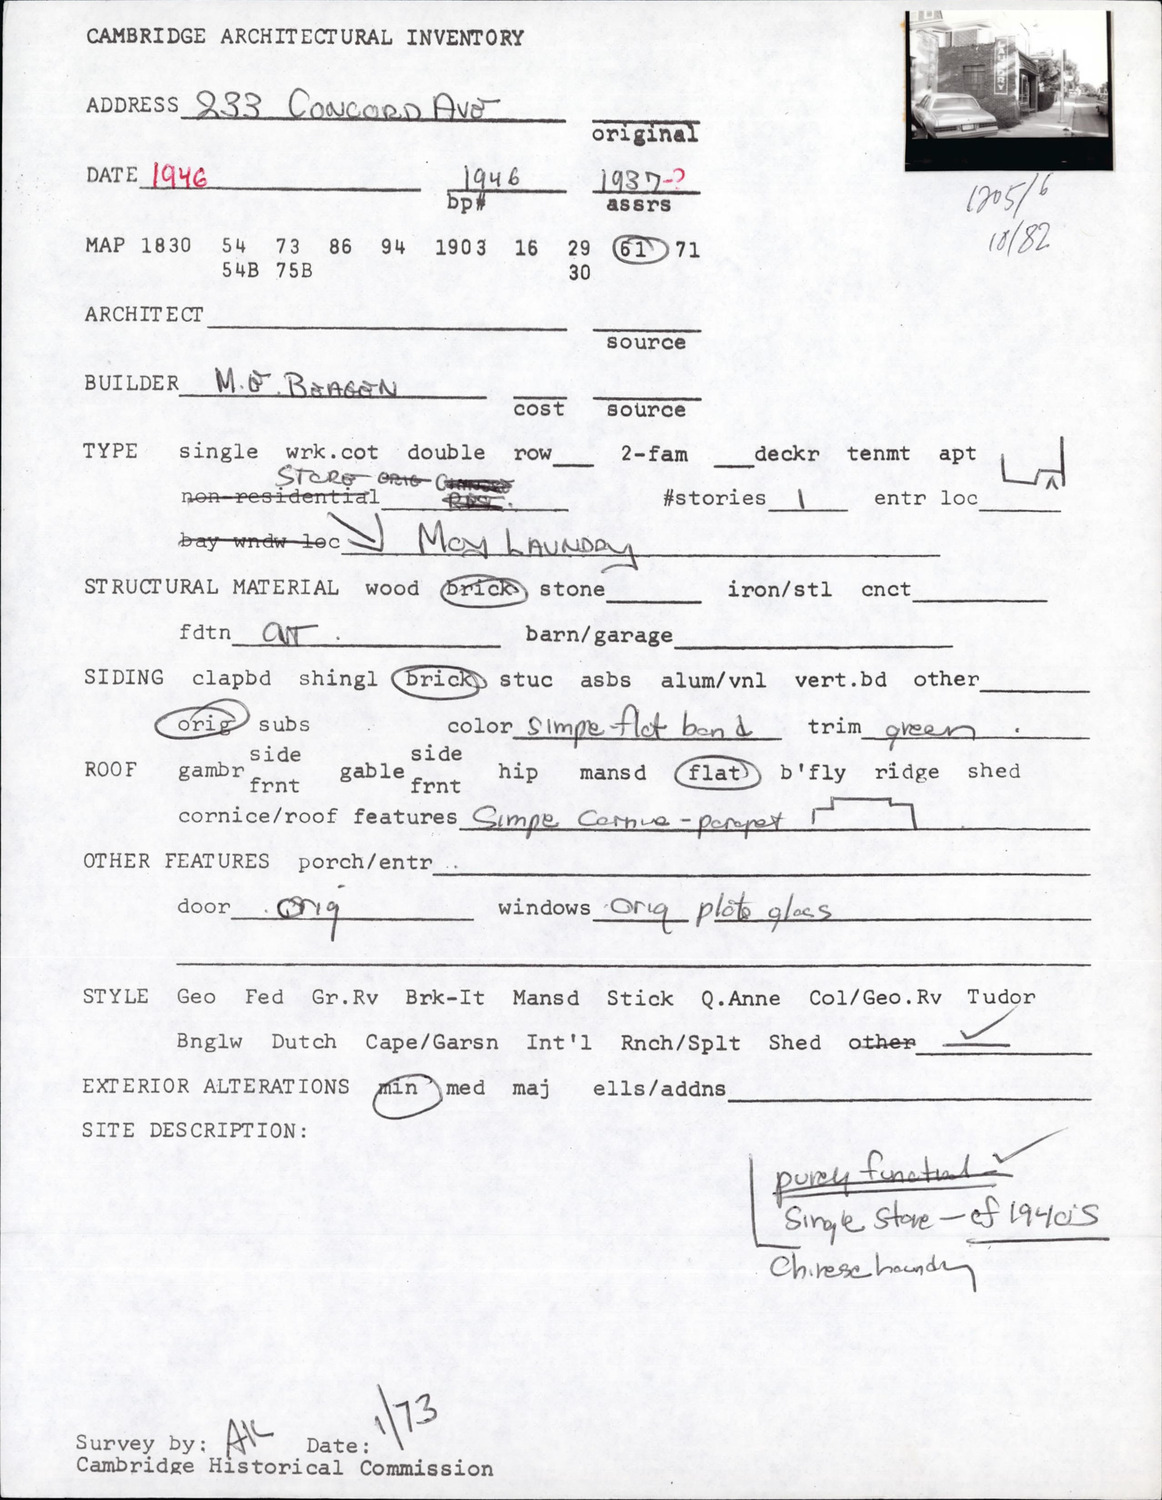 CAMBRIDGE ARCHITECTURAL INVENTORY
ADDRESS 233 CONCORD AVE
original
DATE 1946 1946 1937-?
bp# assrs
1205/6
10/82
MAP 1830 54 73 86 94 1903 16 29 61 71
54B 75B 30
ARCHITECT
source
BUILDER M.E. BEAGEN
cost source
TYPE single wrk.cot double row 2-fam deckr tenmt apt
STORE ORIG
non-residential #stories 1 entr loc
bay wndw loc MOY LAUNDRY
STRUCTURAL MATERIAL wood brick stone iron/stl cnct
fdtn barn/garage
SIDING clapbd shingl brick stuc asbs alum/vnl vert.bd other
orig subs color Simpe flat band trim green
side side
ROOF gambr gable hip mansd flat b'fly ridge shed
frnt frnt
cornice/roof features Simpe Cornice - parapet
OTHER FEATURES porch/entr
door orig windows Orig plate glass
STYLE Geo Fed Gr.Rv Brk-It Mansd Stick Q.Anne Col/Geo.Rv Tudor
Bnglw Dutch Cape/Garsn Int'l Rnch/Splt Shed other
EXTERIOR ALTERATIONS min med maj ells/addns
SITE DESCRIPTION:
purely functional
Single Store - of 1940's
Chinese laundry
Survey by: AK Date: 1/73
Cambridge Historical Commission